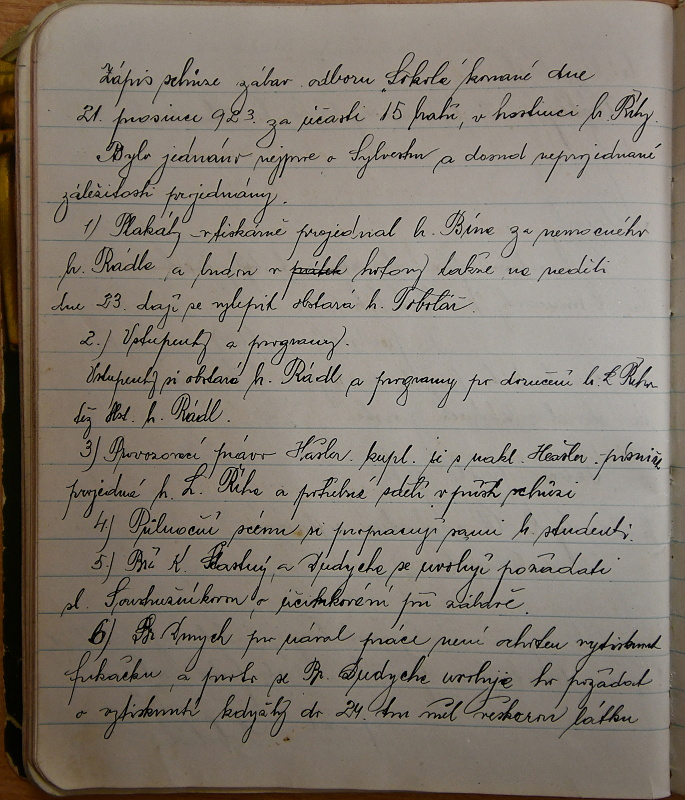 Zápis schůze zábav. odboru „Sokola“ konané dne
21. prosince 923. za účasti 15 bratů, v hostinci br. Říhy.
Bylo jednáno nejprve o Sylvestru a dosud neprojednané
záležitosti projednány.
1) Plakáty v tiskárně projednal br. Bína za nemocného
br. Rádla, a budou v pátek hotovy takže na neděli
dne 23. dají se vylepit obstará b. Tobolář.
2.) Vstupenky a programy.
Vstupenky si obstará br. Rádl a programy po doručení br. L Říhou
též br. Rádl.
3) Provozovací právo Hašler. kupl. ji s nakl. Hašler. písniček
projedná b. L. Říha a potřebné sdělí v příšt schůzi
4) Půlnoční scénu si propracují sami br. studenti.
5.) Bři K. Šťastný, a Dudycha se uvolují požádati
sl. Soustružníkovou o účinkování při zábavě.
6) Br. Dmych pro nával práce není ochoten vytisknout
, a proto se Br. Dudycha uvoluje ho požádat
o vytisknutí kdyžby do 24 tm měl veškerou látku